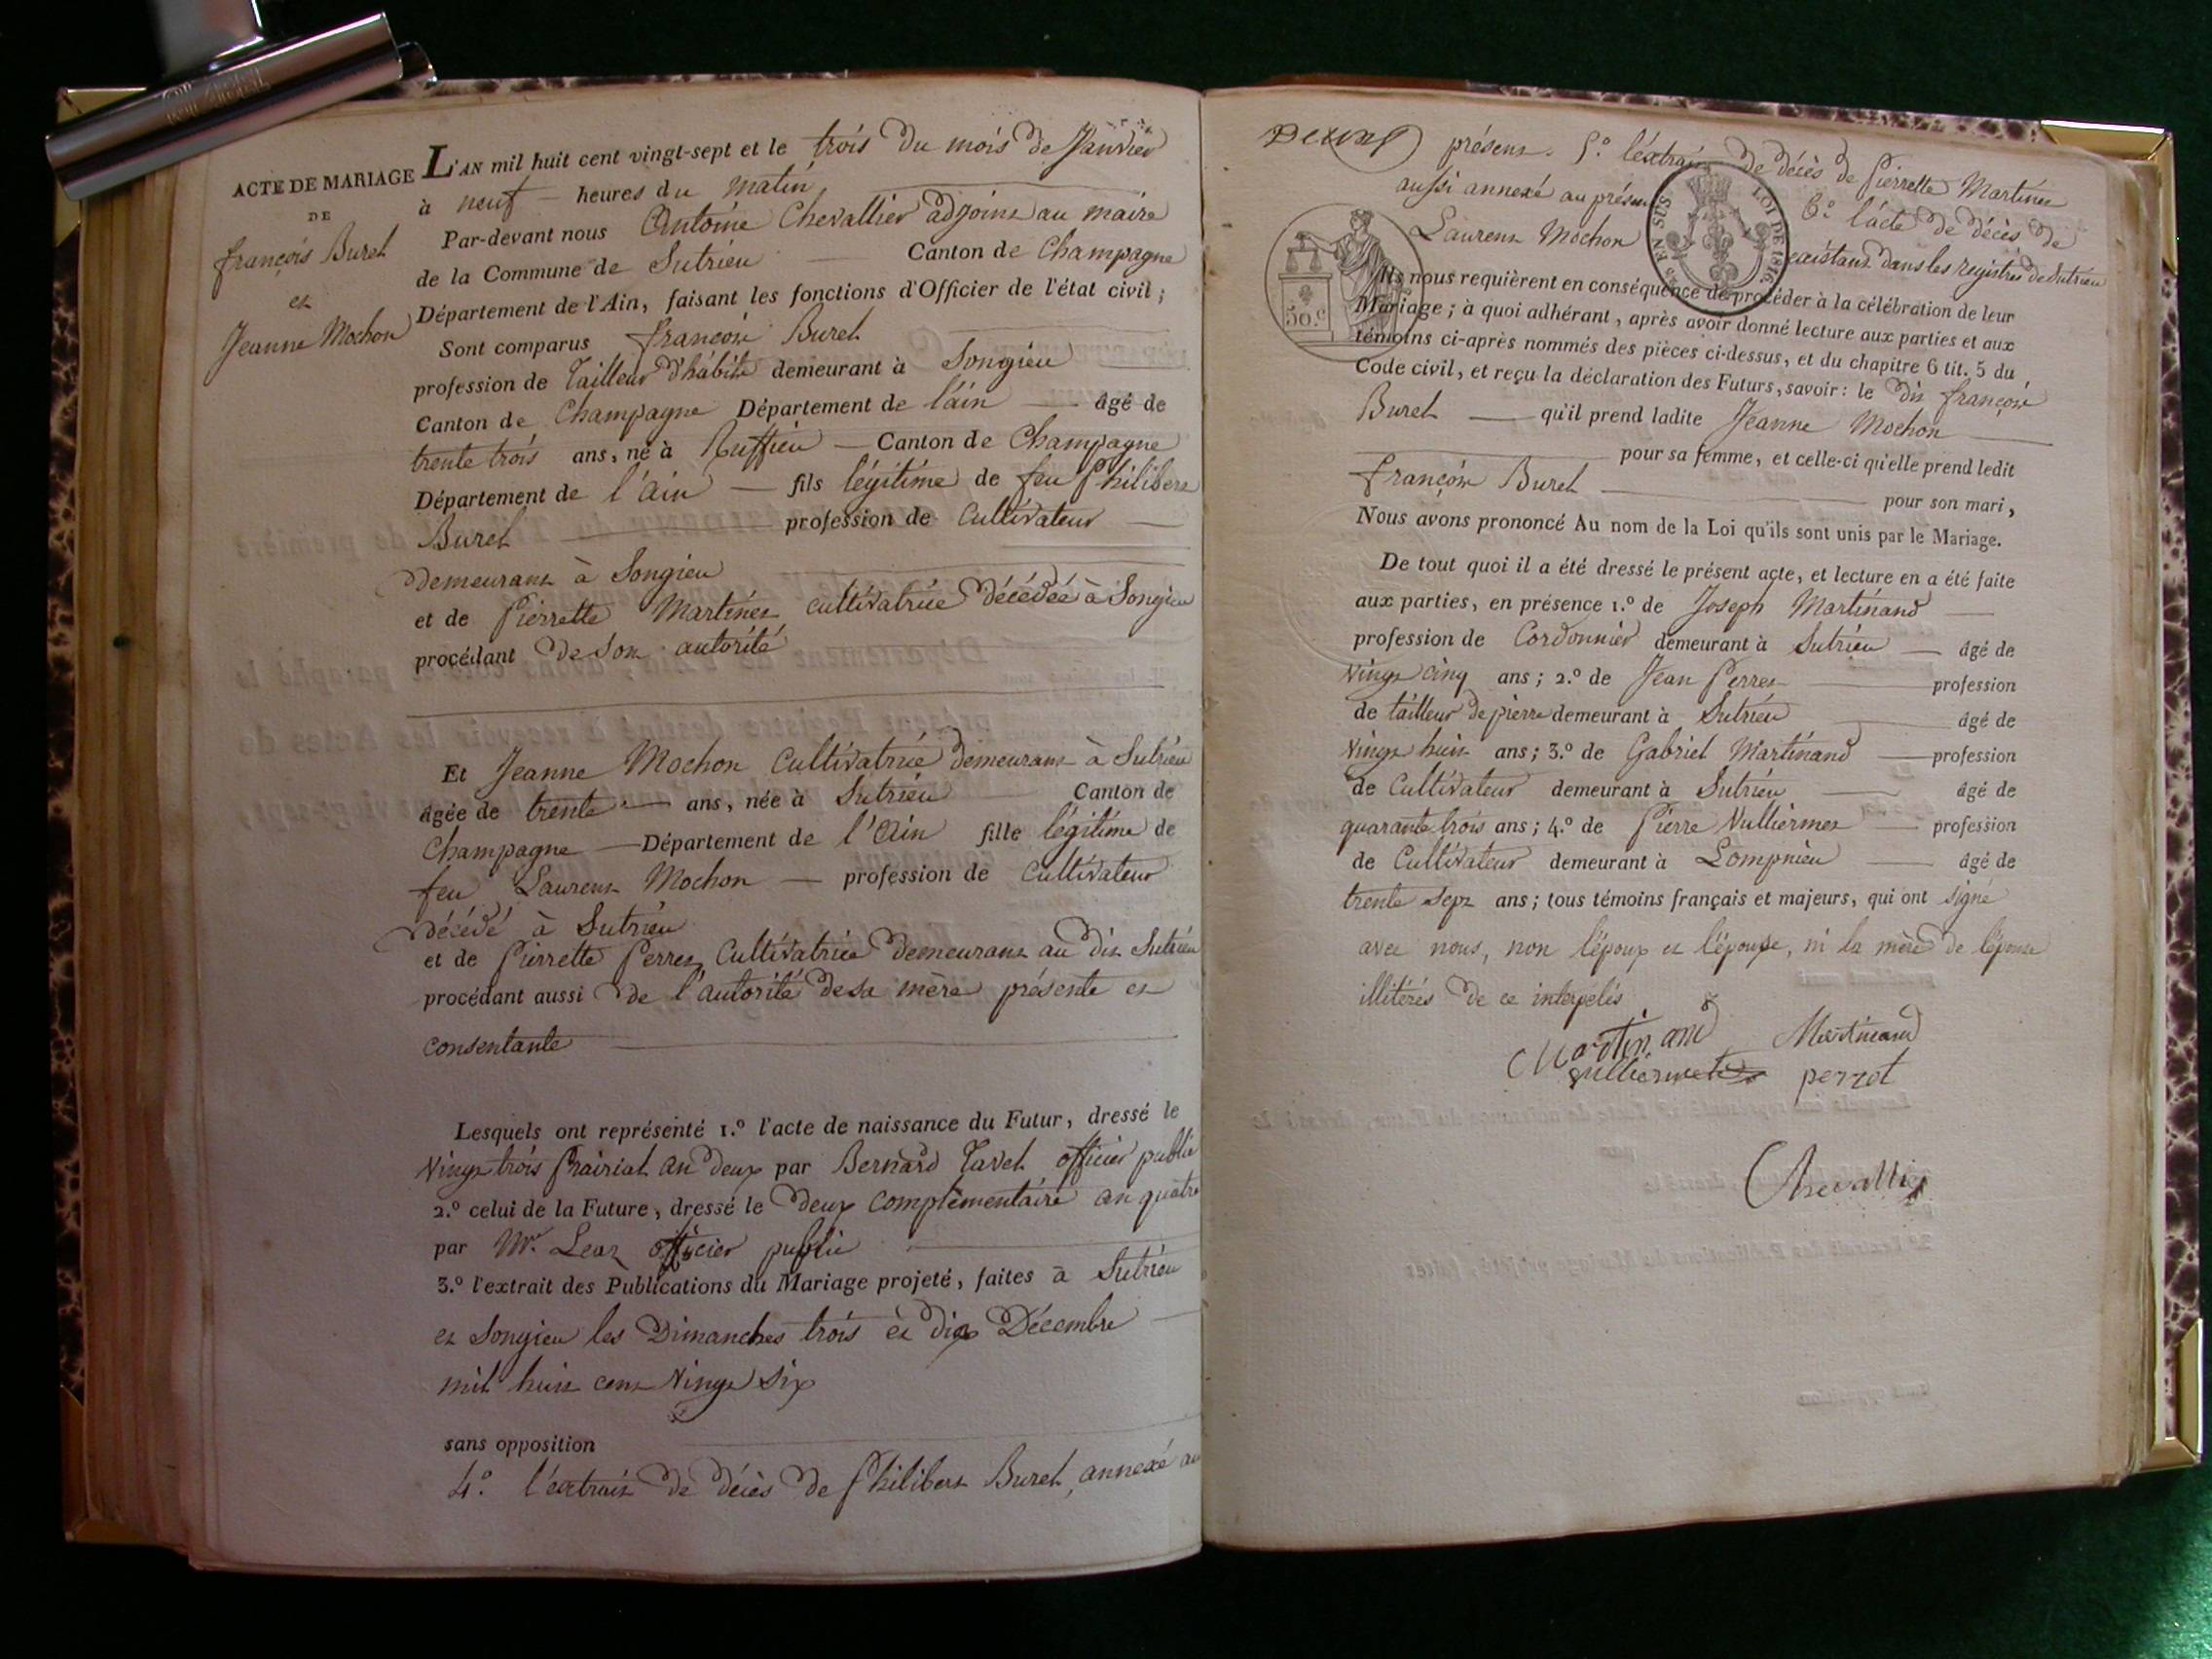 ACTE DE MARIAGE
DE
françois Buret
et
Jeanne Mochon
L'AN mil huit cent vingt-sept et le trois du mois de Janvier
à neuf heures du matin
Par-devant nous Antoine Chevallier adjoint au maire
de la Commune de Sutrieu Canton de Champagne
Département de l'Ain, faisant les fonctions d'Officier de l'état civil ;
Sont comparus françois Buret
profession de Tailleur d'habits demeurant à Songieu
Canton de Champagne Département de l'ain âgé de
trente trois ans, né à Ruffieu Canton de Champagne
Département de l'Ain fils légitime de feu Philibert
Buret profession de Cultivateur
demeurant à Songieu
et de Pierrette Martinet cultivatrice décédée à Songieu
procédant de son autorité
Et Jeanne Mochon Cultivatrice demeurant à Sutrieu
âgée de trente ans, née à Sutrieu Canton de
Champagne Département de l'Ain fille légitime de
feu Laurent Mochon profession de Cultivateur
décédé à Sutrieu
et de Pierrette Perret Cultivatrice demeurant au dit Sutrieu
procédant aussi de l'autorité de sa mère présente et
consentante
Lesquels ont représenté 1.º l'acte de naissance du Futur, dressé le
Vingt trois Prairial an deux par Bernard Tavel officier public
2.º celui de la Future, dressé le deux complémentaire an quatre
par Mr. officier public
3.º l'extrait des Publications du Mariage projeté, faites à Sutrieu
et Songieu les Dimanches trois et dix Décembre
mil huit cent Vingt Six
sans opposition
4.º l'extrait de décès de Philibert Buret, annexé au
présent. 5.º l'extrait de décès de Pierrette Martinet
aussi annexé au présent 6.º l'acte de décès de
Laurent Mochon existant dans les registres de Sutrieu
EN SUS LOI DE 1816
50.c
Ils nous requièrent en conséquence de procéder à la célébration de leur
Mariage ; à quoi adhérant, après avoir donné lecture aux parties et aux
témoins ci-après nommés des pièces ci-dessus, et du chapitre 6 tit. 5 du
Code civil, et reçu la déclaration des Futurs, savoir : le dit françois
Buret qu'il prend ladite Jeanne Mochon
pour sa femme, et celle-ci qu'elle prend ledit
françois Buret pour son mari,
Nous avons prononcé Au nom de la Loi qu'ils sont unis par le Mariage.
De tout quoi il a été dressé le présent acte, et lecture en a été faite
aux parties, en présence 1.º de Joseph Martinand
profession de Cordonnier demeurant à Sutrieu âgé de
Vingt cinq ans ; 2.º de Jean Perret profession
de tailleur de pierre demeurant à Sutrieu âgé de
Vingt huit ans ; 3.º de Gabriel Martinand profession
de Cultivateur demeurant à Sutrieu âgé de
quarante trois ans ; 4.º de Pierre Vulliermet profession
de Cultivateur demeurant à Lompnieu âgé de
trente sept ans ; tous témoins français et majeurs, qui ont signé
avec nous, non l'époux et l'épouse, ni la mère de l'épouse
illitérés de ce interpelés
Martinand Martinand
vulliermet perret
Chevallier